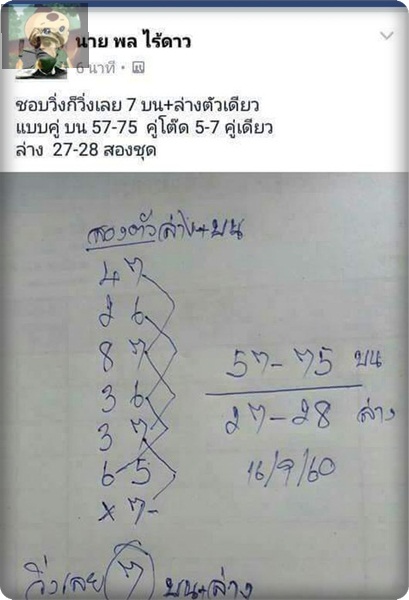 นาย พล ไร้ดาว
6 นาที
ชอบวิ่งก็วิ่งเลย 7 บน+ล่างตัวเดียว
แบบคู่ บน 57-75 คู่โต๊ด 5-7 คู่เดียว
ล่าง 27-28 สองชุด
สองตัวล่าง+บน
4 ๗
2 6
8 ๗
3 6
3 ๗
6-5
× ๗-
5๗-๗5 บน
2๗-28 ล่าง
16/9/60
วิ่งเลย ๗ บน+ล่าง